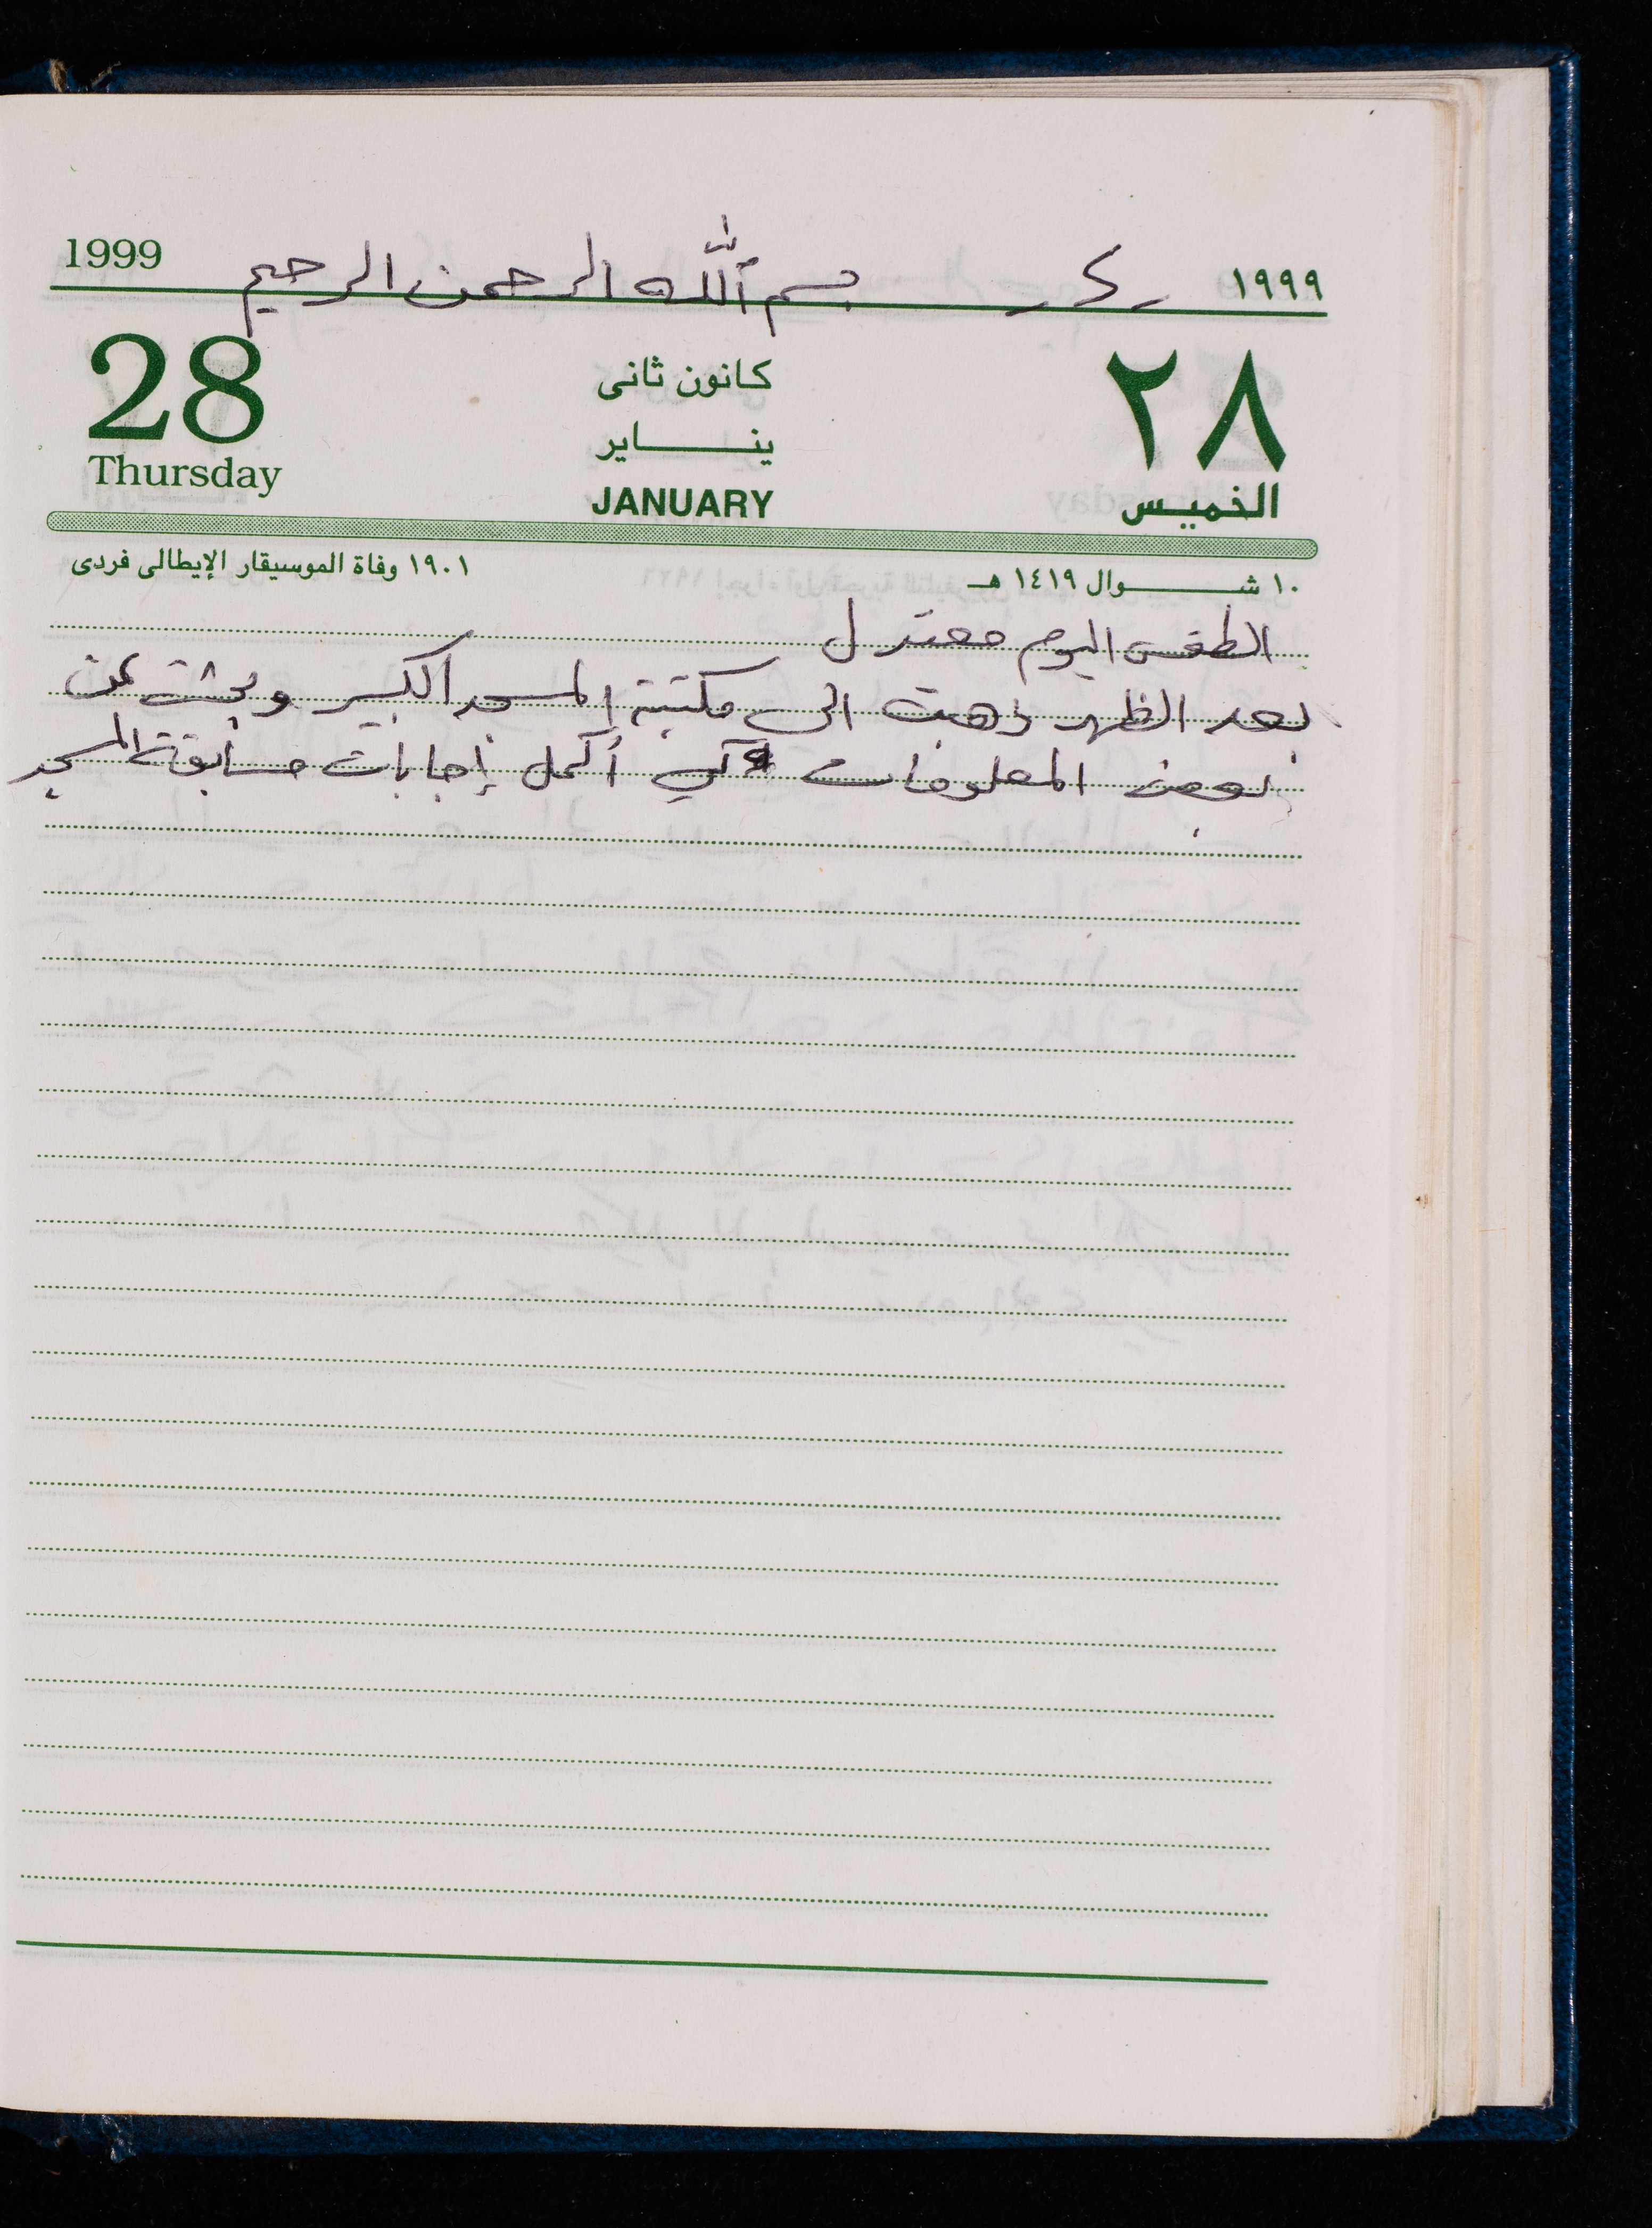 1999 بسم الله الرحمن الرحيم ١٩٩٩
28 كانون ثانى ٢٨
ينـــاير
Thursday JANUARY الخميس
١٩٠١ وفاة الموسيقار الإيطالى فردى ١٠ شـــوال ١٤١٩ هـ
الطقس اليوم معتدل
بعد الظهر ذهبت الى مكتبة المسجد الكبير وبحثت عن
بعض المعلومات كي أكمل إجابات مسابقة المسجد